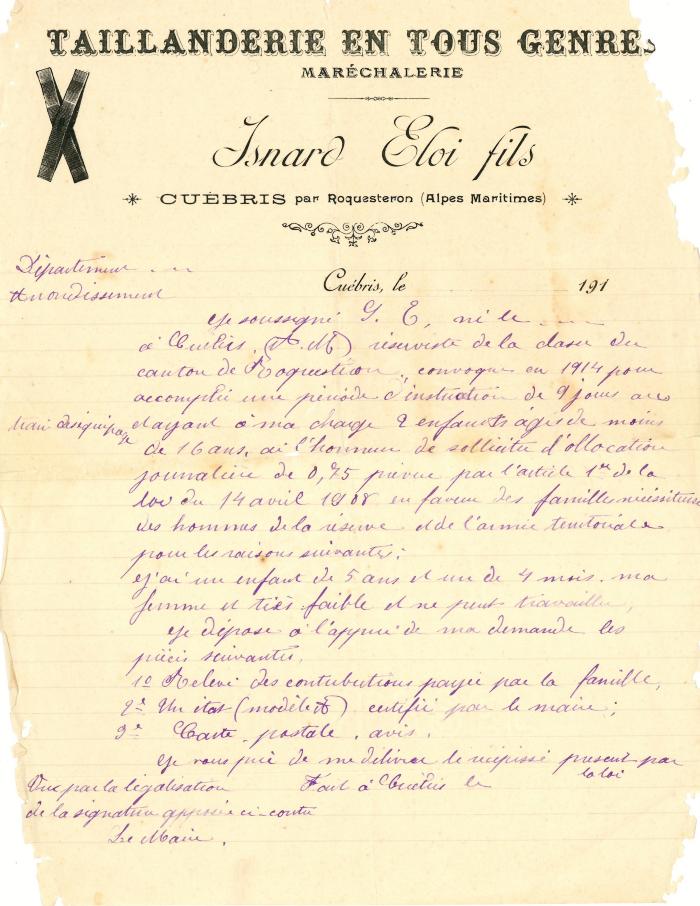 TAILLANDERIE EN TOUS GENRES
MARÉCHALERIE
Isnard Eloi fils
CUÉBRIS par Roquesteron (Alpes Maritimes)
Département
Cuébris, le 191
Arrondissement
Je soussigné I. E, né le
à Cuébris, (A. M) réserviste de la classe du
canton de Roquesteron, convoqué en 1914 pour
accomplir une période d'instruction de 9 jours au
etayant à ma charge 2 enfants âgés de moins
de 16 ans, ai l'honneur de solliciter d'allocation
journalière de 0,75 prévue par l'article 1er de la
loi du 14 avril 1908 en faveur des famille nécessiteuse
des hommes de la réserve et de l'armée territoriale
pour les raisons suivantes:
J'ai un enfant de 5 ans et un de 4 mois. ma
femme et très faible et ne peut travailler,
Je dépose à l'appui de ma demande les
pièces suivantes.
1º Relevé des contributions payée par la famille,
2º Un état (modèle A) certifié par le maire;
3º Carte postale, avis.
Je vous prie de me délivrer le récépissé present par
la loi
Vue par la légalisation Fait à Cuébris le
de la signature apposée ci-contre
Le Maire.